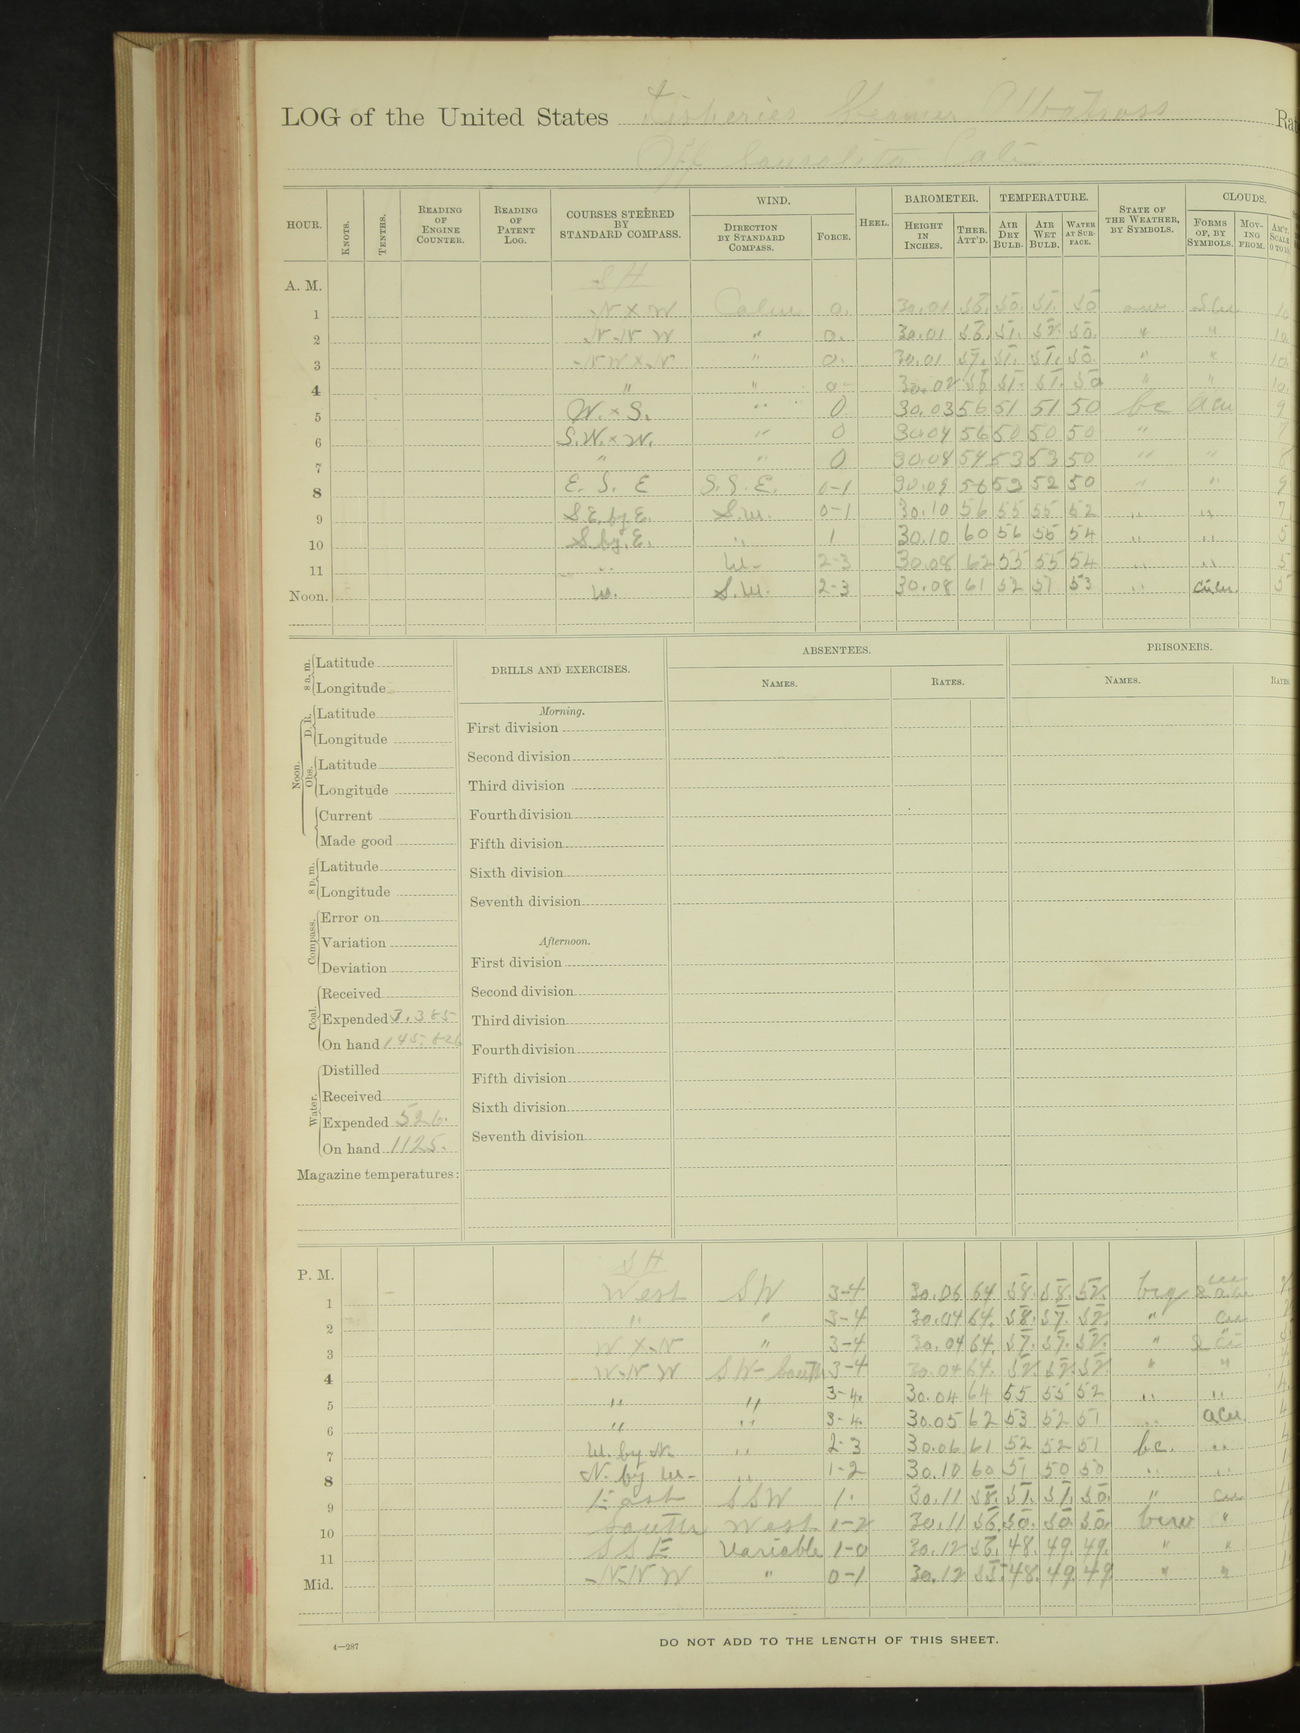 LOG of the United States Fisheries Steamer Albatross Ra
Off Sausalito Cali
HOUR. KNOTS. TENTHS. READING OF ENGINE COUNTER. READING OF PATENT LOG. COURSES STEERED BY STANDARD COMPASS. WIND. DIRECTION BY STANDARD COMPASS. FORCE. HEEL. BAROMETER. HEIGHT IN INCHES. THER. ATT'D. TEMPERATURE. AIR DRY BULB. AIR WET BULB. WATER AT SURFACE. STATE OF THE WEATHER, BY SYMBOLS. CLOUDS. FORMS OF, BY SYMBOLS. MOVING FROM. AM'T. SCALE 0 TO 10.
A. M. SH
1 N x W Calm 0. 30.01 50. 51. 50 10
2 N-N W " 0. 30.01 51. 52. 50. " " 10
3 NW x N " 0. 30.01 57. 51. 51. 50. " " 10
4 " " 0 30.02 51. 51. 50 " " 10.
5 W. x S. " 0 30.03 56 51 51 50 bc acu 9
6 S.W. x W. " 0 30.04 56 50 50 50 "
7 " " 0 30.08 54 53 53 50 " "
8 E. S. E S.S.E. 0-1 30.09 56 53 52 50 " " 9
9 S.E. by E. S.W. 0-1 30.10 56 55 55 52 " " 7
10 S by. E. " 1 30.10 60 56 56 54 " " 5
11 " W- 2-3 30.08 62 55 55 54 " " 5
Noon. W. S.W. 2-3 30.08 61 52 51 53 " cicu. 5
8 a. m. Latitude
Longitude
Noon. D. R. Latitude
Longitude
Obs. Latitude
Longitude
Current
Made good
8 p. m. Latitude
Longitude
Compass. Error on
Variation
Deviation
Coal. Received
Expended 7.385
On hand 145.826
Water. Distilled
Received
Expended 526.
On hand 1125.
Magazine temperatures:
DRILLS AND EXERCISES.
Morning.
First division
Second division
Third division
Fourth division
Fifth division
Sixth division
Seventh division
Afternoon.
First division
Second division
Third division
Fourth division
Fifth division
Sixth division
Seventh division
ABSENTEES.
NAMES. RATES.
PRISONERS.
NAMES. RATES
P. M. SH
1 West SW 3-4 30.06 64 58. 58. 52.
2 " " 3-4 30.04 64. 58. 57. 52. " cu
3 W x N " 3-4 30.04 64. 57. 57. 52. "
4 W-N W SW- South 3-4 30.04 64. 52. 52. 52. " "
5 " " 3-4. 30.04 64 55 55 52 " "
6 " " 3-4. 30.05 62 53 52 51 " acu.
7 W. by N. " 2-3 30.06 61 52 52 51 bc. "
8 N. by W- " 1-2 30.10 60 51 50 50 " "
9 East SSW 1. 30.11 58. 51. 51. 50. " cu
10 South West 1-2 30.11 56. 50. 50. 50. "
11 SSE Variable 1-0 30.12 56. 48. 49. 49. " "
Mid. N-N W " 0-1 30.12 55. 48. 49 49 " "
4—287
DO NOT ADD TO THE LENGTH OF THIS SHEET.